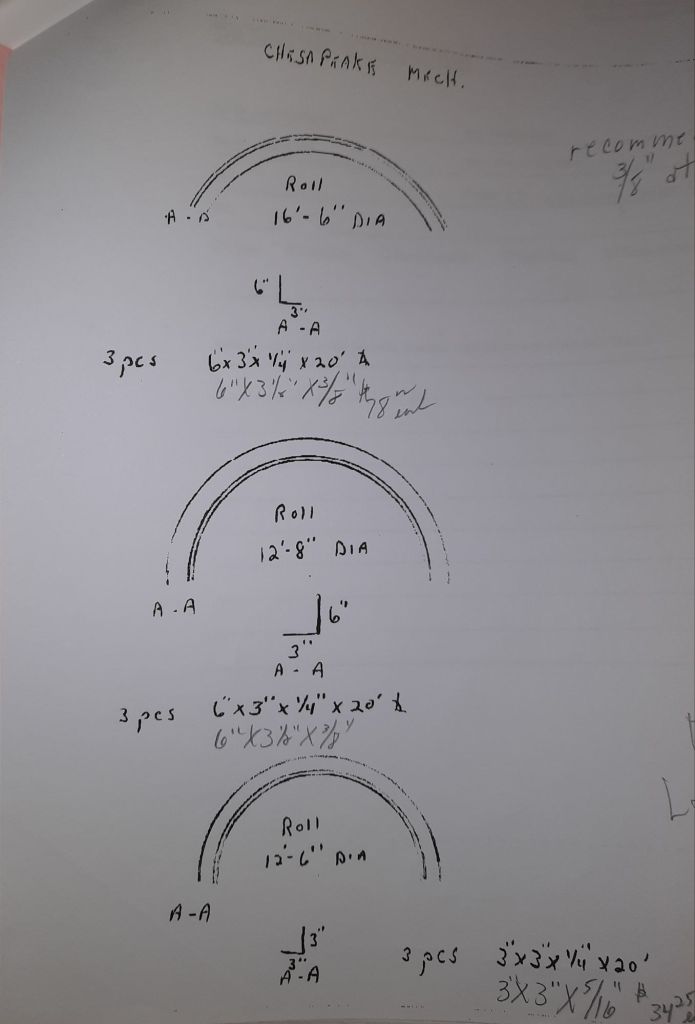 CHESAPEAKE MECH.
recomme
3/8" at
Roll
A-A 16'-6" DIA
6"
3"
A-A
3 pcs 6"x3"x1/4"x20'
6"X3 1/2"X3/8" $78
Roll
12'-8" DIA
A-A
6"
3"
A-A
3 pcs 6"x3"x1/4"x20'
6"X3 1/2"X3/8"
Roll
12'-6" DIA
A-A
3"
3"
A-A
3 pcs 3"x3"x1/4"x20'
3"X3"X5/16" $34 25